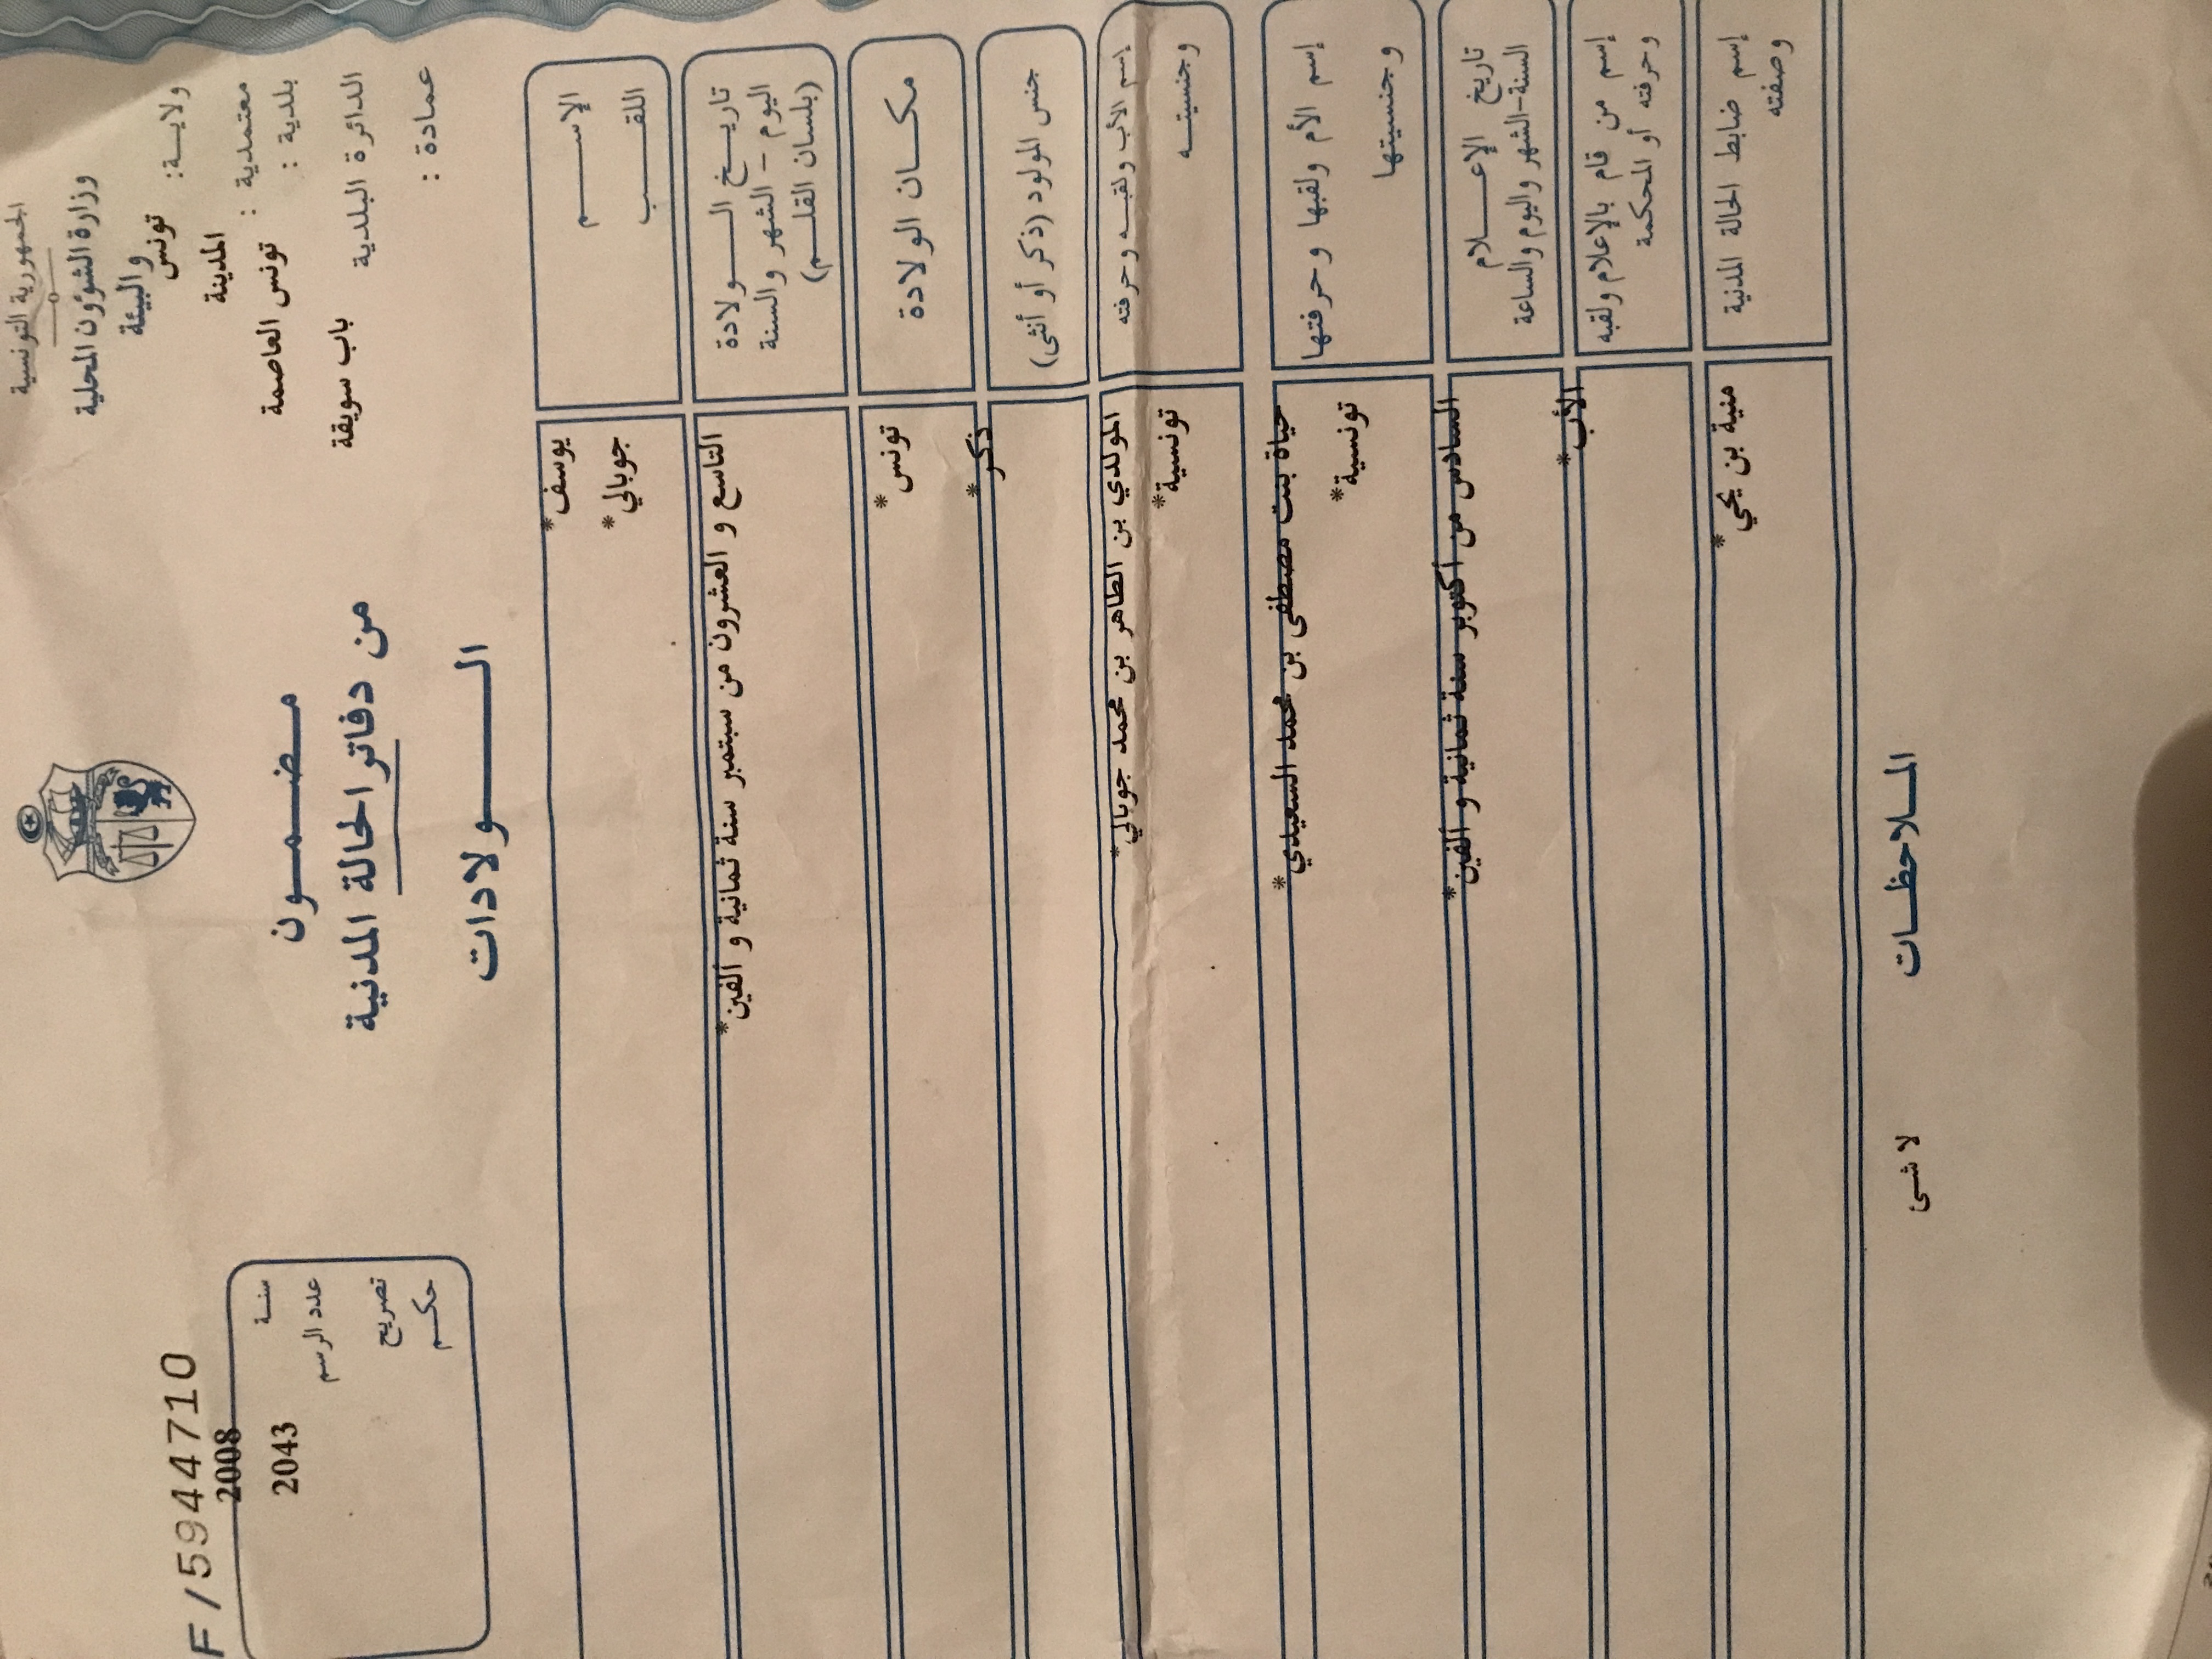 الجمهورية التونسية
وزارة الشؤون المحلية
والبيئة
ولاية: تونس
معتمدية : المدينة
بلدية : تونس العاصمة
الدائرة البلدية باب سويقة
عمادة :
مضمون
من دفاتر الحالة المدنية
الولادات
F/5944710
سنة 2008
عدد الرسم 2043
تصريح
حكم
الإسم يوسف*
اللقب جوبالي*
تاريخ الولادة
اليوم - الشهر والسنة
(بلسان القلم)
التاسع و العشرون من سبتمبر سنة ثمانية و ألفين*
مكان الولادة تونس*
جنس المولود (ذكر أو أنثى) ذكر*
إسم الأب ولقبه وحرفته المولدي بن الطاهر بن محمد جوبالي*
وجنسيته تونسية*
إسم الأم ولقبها وحرفتها حياة بنت مصطفى بن محمد السعيدي*
وجنسيتها تونسية*
تاريخ الإعلام
السنة-الشهر واليوم والساعة
السادس من أكتوبر سنة ثمانية و ألفين*
إسم من قام بالإعلام ولقبه
وحرفته أو المحكمة
الأب*
إسم ضابط الحالة المدنية
وصفته
منية بن يحي*
الملاحظات
لا شئ